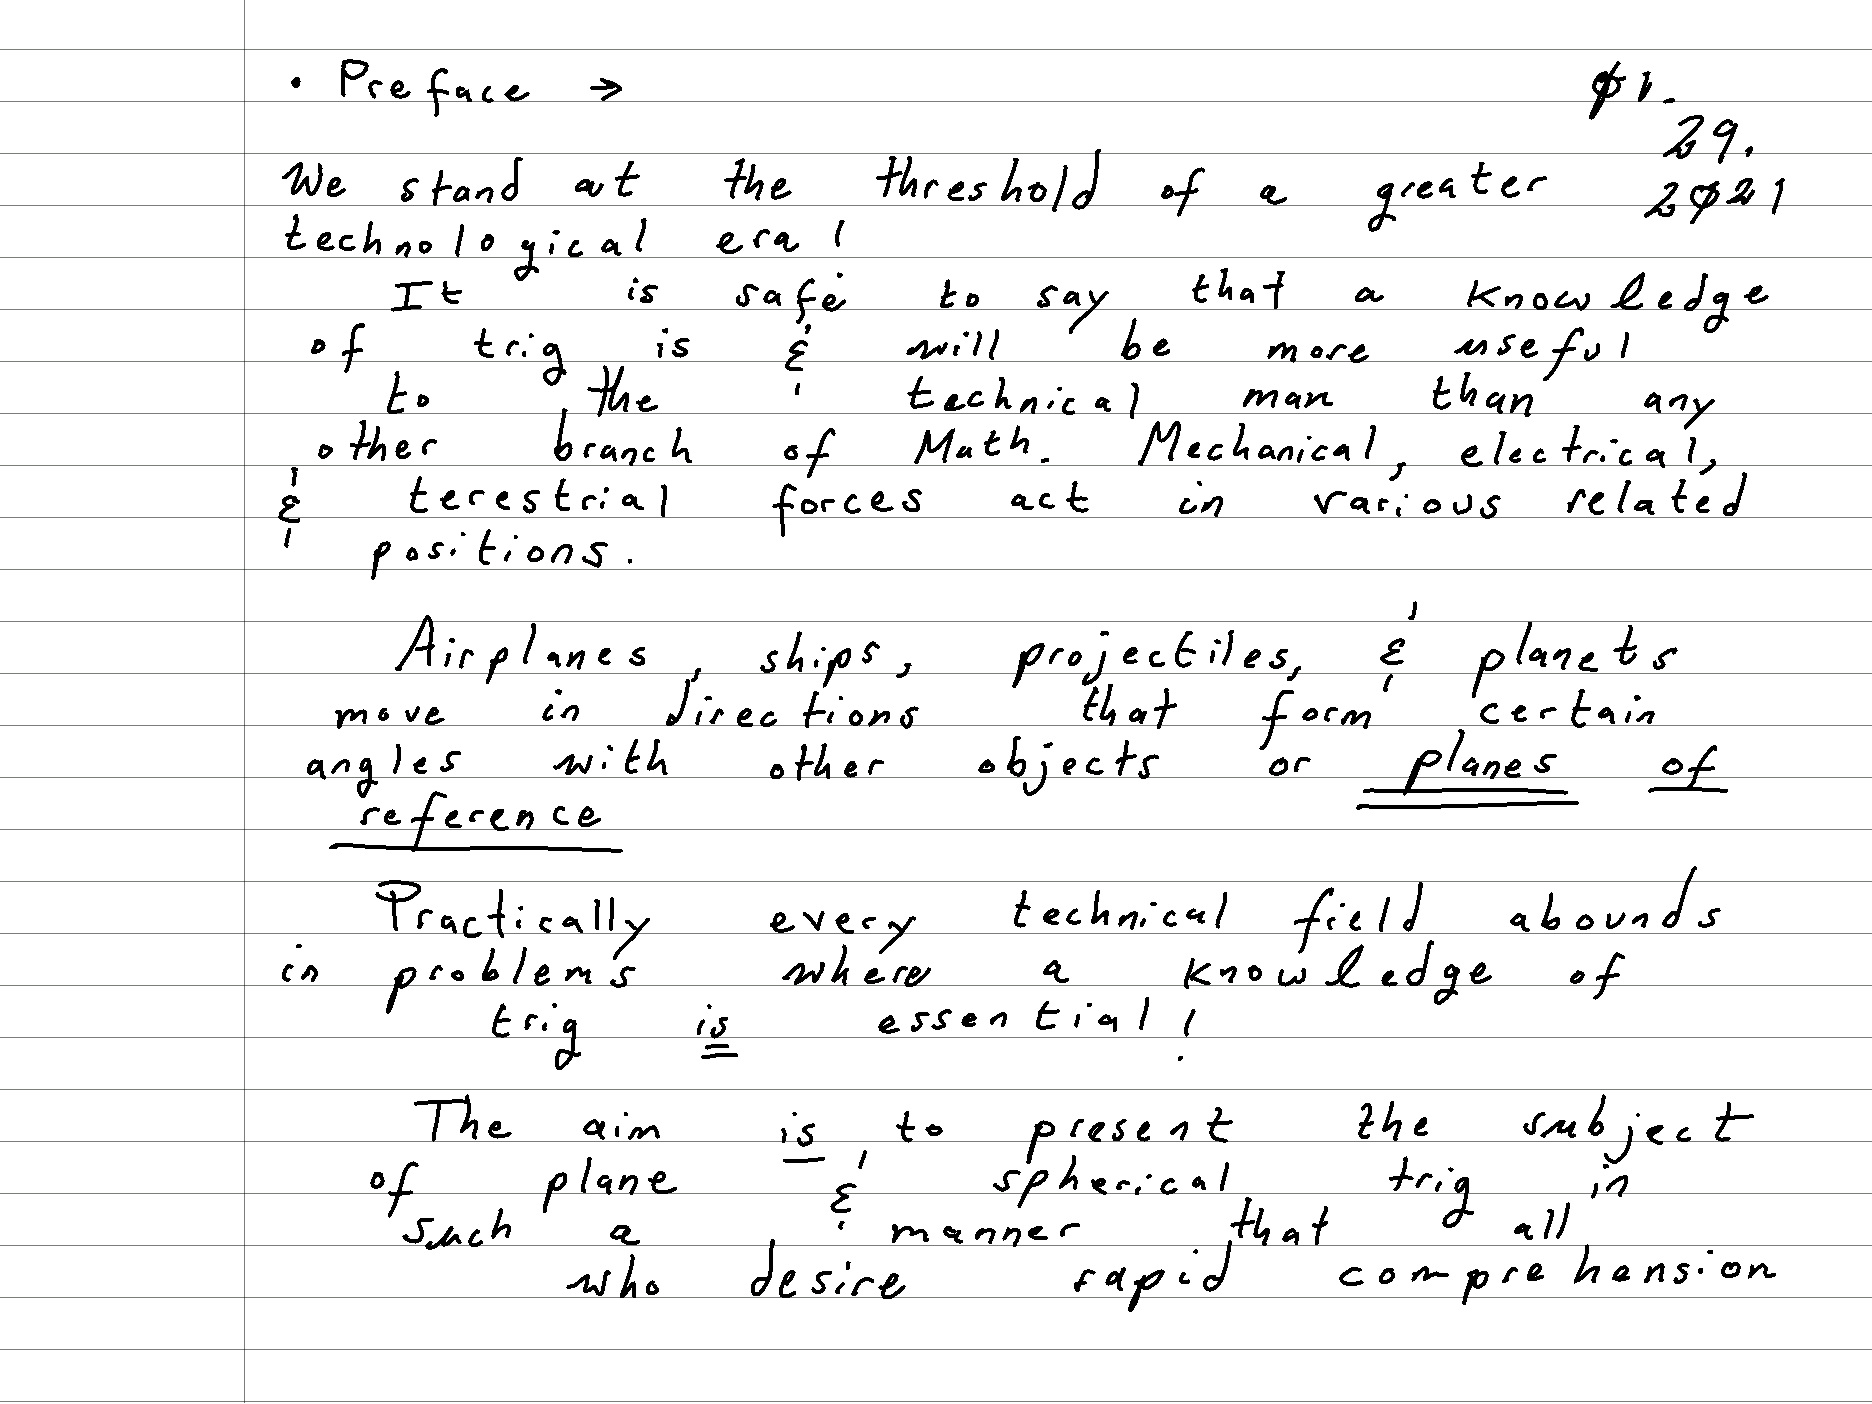 • Preface →
01.
29.
2021
We stand at the threshold of a greater
technological era!
It is safe to say that a knowledge
of trig is & will be more useful
to the technical man than any
other branch of Math. Mechanical, electrical,
& terestrial forces act in various related
positions.
Airplanes, ships, projectiles, & planets
move in directions that form certain
angles with other objects or planes of
reference
Practically every technical field abounds
in problems where a knowledge of
trig is essential!
The aim is to present the subject
of plane & spherical trig in
such a manner that all
who desire rapid comprehension